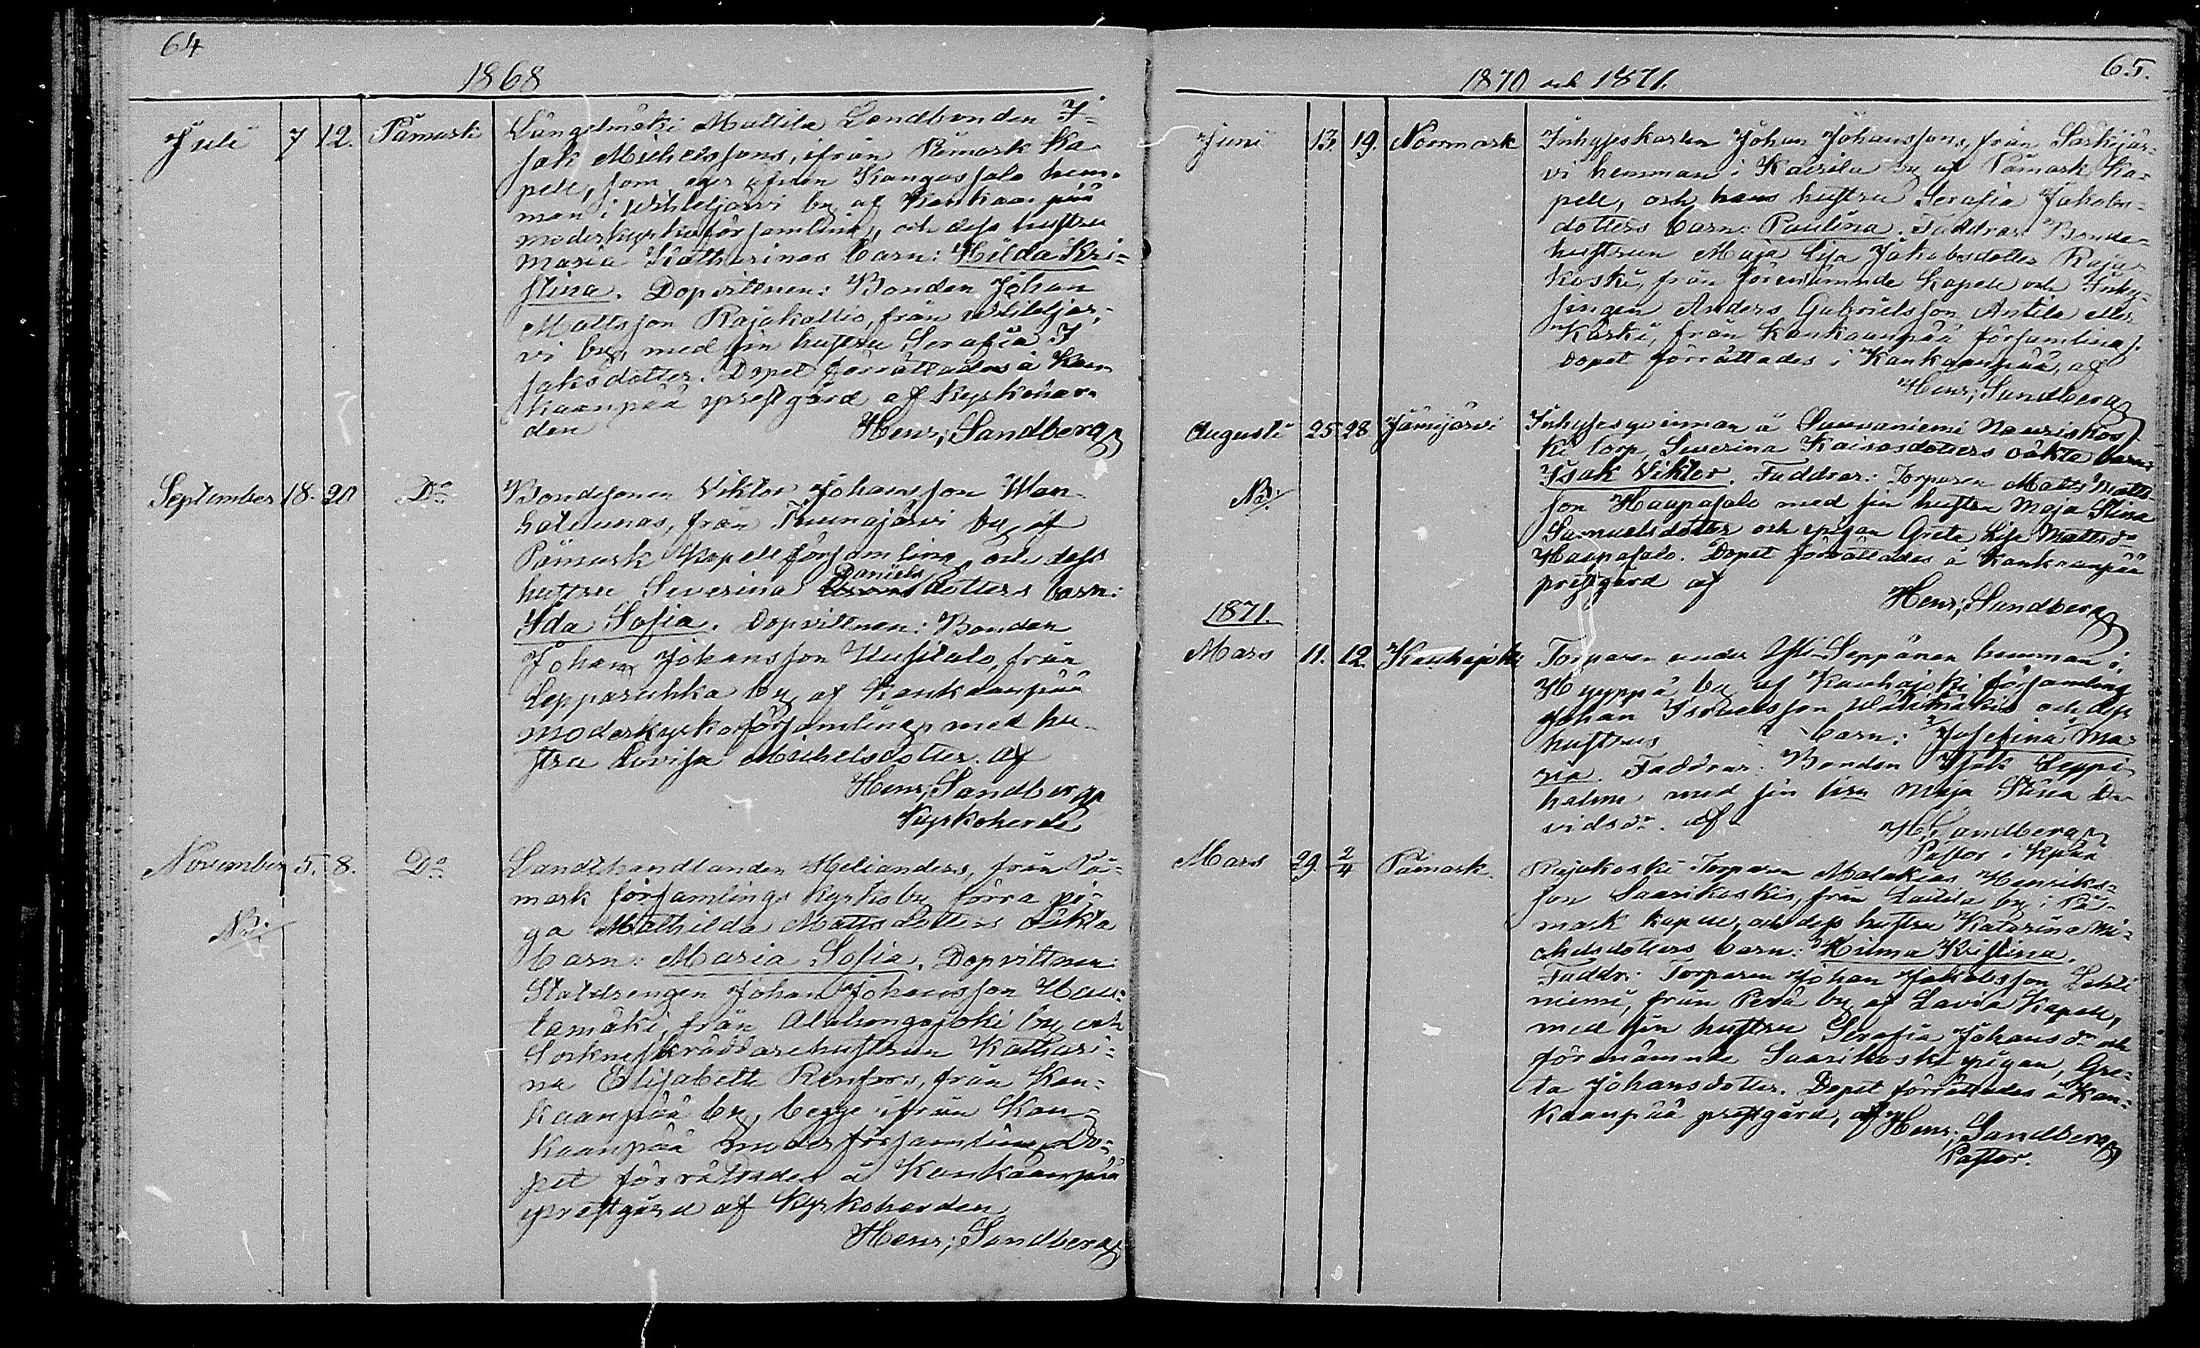 64
1868
Juli 7 12. Påmark Längelmäki Mattila Landbonden I-
sak Michelssons, ifrån Påmark Ka-
pell, som eger ifrån Kangassalo hem-
man i by af Kankaanpää
moderkyrkoförsamling, och dess hustru
Maria Katharinas barn: Hilda Kri-
stina. Dopvittnen: Bonden Johan
Mattsson Rajakallio, från
vi by, med sin hustru Serafia I
saksdotter. Dopet förrättades å Kan
kaanpää prestgård af Kyrkoher-
den Henr; Sandberg
September 18. 20 Do Bondesonen Viktor Johansson Wan
hatalunas, från by af
Påmark Kapellförsamling, och dess
Daniels
hustru Severina dotters barn:
Ida Sofia. Dopvittnen: Bonden
Johan Johansson Uusitalo, från
Lepparuhka by af Kankaanpää
moderkyrkoförsamling, med hu-
stru Lovisa Michelsdotter. af
Henr; Sandberg
Kyrkoherde
November 5. 8. Do Landthandlanden Helianders, från På-
mark församlings Kyrkoby, förra pi-
ga Mathilda Mattsdotters oäkta
Nb: barn: Maria Sofia. Dopvittnen:
Staldrengen Johan Johansson Hau-
tamäki, från Alahongajoki by och
Sockneskräddarehustrun Kathari-
na Elisabeth Renfors, från Kan-
kaanpää by, begge ifrån Kan-
kaanpää moderförsamling. Do-
pet förrättades å Kankaanpää
prestgård af Kyrkoherden
Henr; Sandberg
65.
1870 och 1871.
Juni 13. 19. Norrmark Inhyseskarlen Johan Johanssons, från Särkijär-
vi hemman i Kairila by af Påmark Ka-
pell, och hans hustru Serafia Jakobs-
dotters barn: Paulina. Faddrar: Bonde-
hustrun Maja Lisa Jakobsdotter Raja-
koski, från förenämnde Kapell och Inhy-
singen Anders Gabrielsson Antila eller
Koski, från Kankaanpää församling.
Dopet förrättades i Kankaanpää, af
Henr; Sandberg
Augusti 25 28 Jämijärvi Inhysesqvinnan å Suuraniemi Nauriskos
ki torp, Severina Kaisasdotters oäkta barn:
Isak Viktor. Faddrar: Torparen Matts Matts
Nb: son Haapasalo med sin hustru Maja Stina
Samuelsdotter och pigan Greta Lisa Mattsdr
Haapasalo. Dopet förrättades å Kankaanpää
prestgård af Henr; Sandberg
1871.
Mars 11. 12. Kauhajoki Torparen under Yli-Seppänen hemman i
Hyyppä by af Kauhajoki församling
Johan och dess
hustrus barn: Josefina Ma-
ria. Faddrar: Bonden Isak Leppi
halme med sin hru Maja Stina Da-
vidsdr. af H. Sandberg
Pastor i Kpää
Mars 29. 2/4 Påmark. Rajakoski Torparen Malakias Henriks-
son Saarikoskis, från by i På-
mark kapell, och dess hustru Katarina Mi-
chelsdotters barn: Hilma Kristina.
Faddr: Torparen Johan Jakobsson Lehti
niemi, från by af Lavia Kapell,
med sin hustru Serafia Johansdr och
förenämnde Saarikoski pigan, Gre-
ta Johansdotter. Dopet förrättades å Kan-
kaanpää prestgård, af Henr; Sandberg
Pastor.